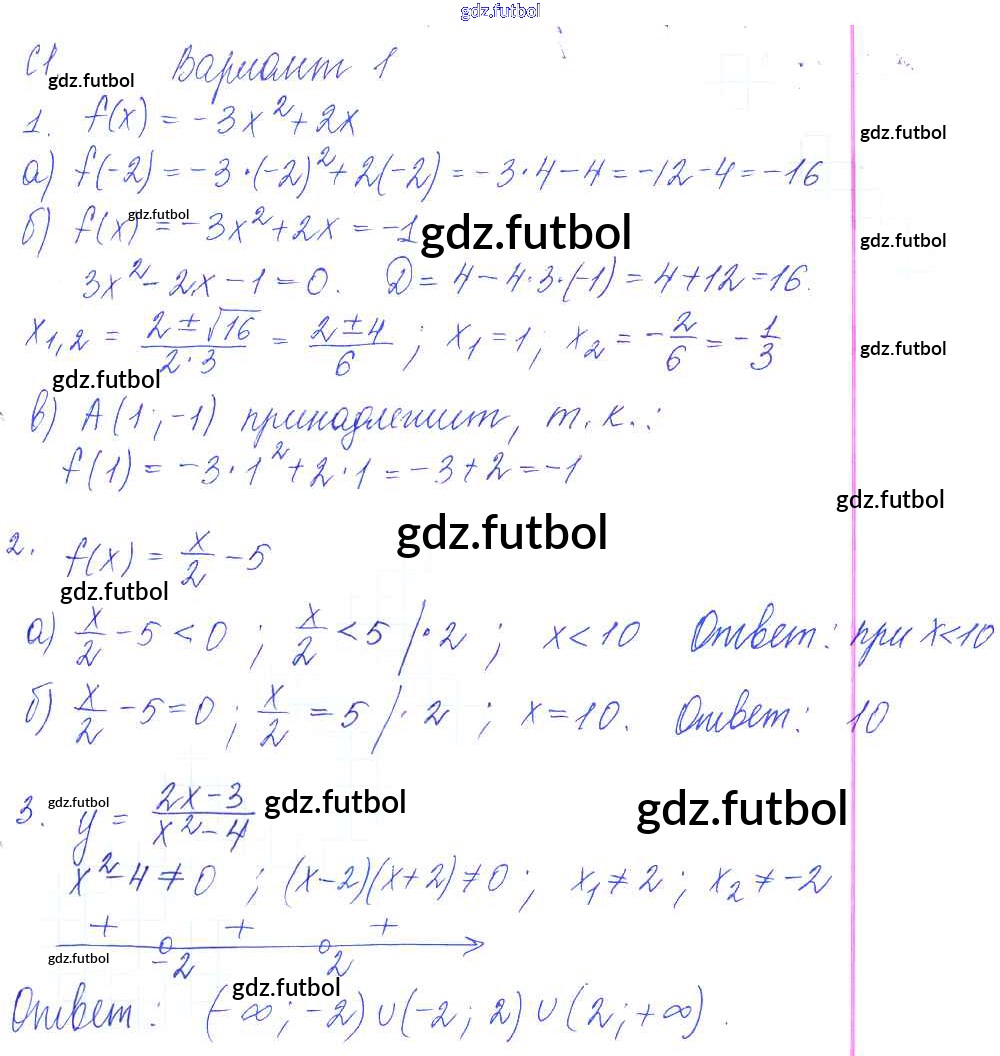 gdz.futbol
С1 Вариант 1
gdz.futbol
1. f(x) = -3x² + 2x
gdz.futbol
а) f(-2) = -3·(-2)² + 2(-2) = -3·4 - 4 = -12 - 4 = -16
gdz.futbol
б) f(x) = -3x² + 2x = -1
gdz.futbol
gdz.futbol
3x² - 2x - 1 = 0. D = 4 - 4·3·(-1) = 4 + 12 = 16.
x₁,₂ = (2 ± √16)/(2·3) = (2 ± 4)/6 ; x₁ = 1 ; x₂ = -2/6 = -1/3
gdz.futbol
gdz.futbol
в) A(1; -1) принадлежит, т.к.:
f(1) = -3·1² + 2·1 = -3 + 2 = -1
gdz.futbol
gdz.futbol
2. f(x) = x/2 - 5
gdz.futbol
а) x/2 - 5 < 0 ; x/2 < 5 /·2 ; x < 10 Ответ: при x < 10
б) x/2 - 5 = 0 ; x/2 = 5 /·2 ; x = 10. Ответ: 10
gdz.futbol
gdz.futbol
gdz.futbol
3. y = (2x - 3)/(x² - 4)
x² - 4 ≠ 0 ; (x - 2)(x + 2) ≠ 0 ; x₁ ≠ 2 ; x₂ ≠ -2
+ + +
-2 2
gdz.futbol
gdz.futbol
Ответ: (-∞; -2) ∪ (-2; 2) ∪ (2; +∞).